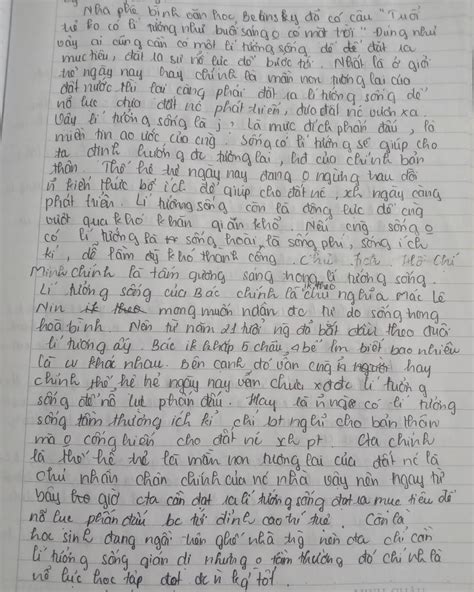 Nhà phê bình văn học Belinsky đã có câu "Tuổi
trẻ ko có lí tưởng như buổi sáng o có mặt trời" Đúng như
vậy ai cũng cần có một lí tưởng sống để đặt ra
mục tiêu, đặt ra sự nỗ lực để bước tới. Nhất là ở giới
trẻ ngày nay hay chính là mầm non tương lai của
đất nước thì lại càng phải đặt ra lí tưởng sống để
nỗ lực đưa đất nc phát triển, đưa đất nc vươn xa.
Vậy lí tưởng sống là j, là mục đích phấn đấu, là
niềm tin ao ước của cng. Sống có lí tưởng sẽ giúp cho
ta định hướng đc tương lai, của chính bản
thân. Thế hệ trẻ ngày nay đang o ngừng trau dồi
kiến thức bổ ích để giúp cho đất nc, xh ngày càng
phát triển. Lí tưởng sống còn là động lực để cng
vượt qua khó khăn gian khổ. Nếu cng sống o
có lí tưởng là sống hoài, là sống phí, sống ích
kỉ, dễ làm khó thành công. Chủ tịch Hồ Chí
Minh chính là tấm gương sáng trong lí tưởng sống.
Lí tưởng sống của Bác chính là theo chủ nghĩa Mác Lê
Nin mong muốn ngân đc tự do sống trong
hoà bình. Nên từ năm 21 tuổi ng đã bắt đầu theo đuổi
lí tưởng ấy. Bác đi khắp 5 châu, 4 bể làm biết bao nhiêu
là cv khác nhau. Bên cạnh đó vẫn còn người hay
chính thế hệ trẻ ngày nay vẫn chưa xđ đc lí tưởng
sống để nỗ lực phấn đấu. Hay là có lí tưởng
sống tầm thường ích kỉ chỉ bt nghĩ cho bản thân
mà o cống hiến cho đất nc xh pt. Cta chính
là thế hệ trẻ là mầm non tương lai của đất nc là
chủ nhân chân chính của nc nhà vậy nên ngay từ
bây giờ cta cần đặt ra lí tưởng sống đặt ra mục tiêu để
nỗ lực phấn đấu bc tới đỉnh cao trí tuệ. Còn là
học sinh đang ngồi trên ghế nhà trg nên cta chỉ cần
lí tưởng sống giản dị nhưng o tầm thường đó chính là
nỗ lực học tập đạt đc kq tốt.